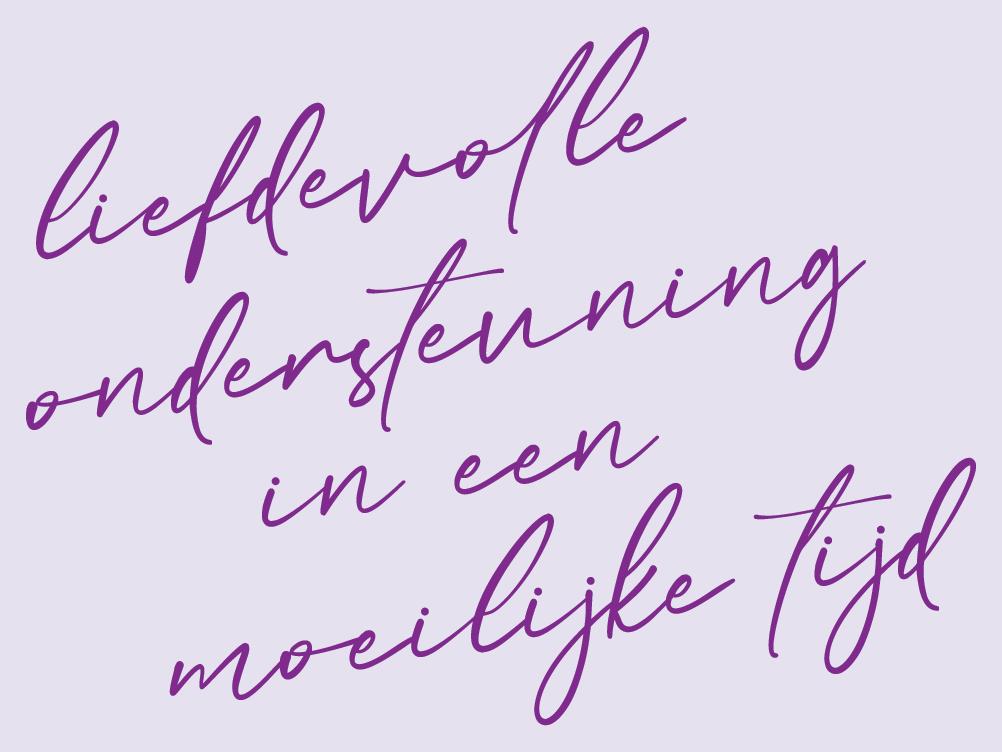 liefdevolle
ondersteuning
in een
moeilijke tijd